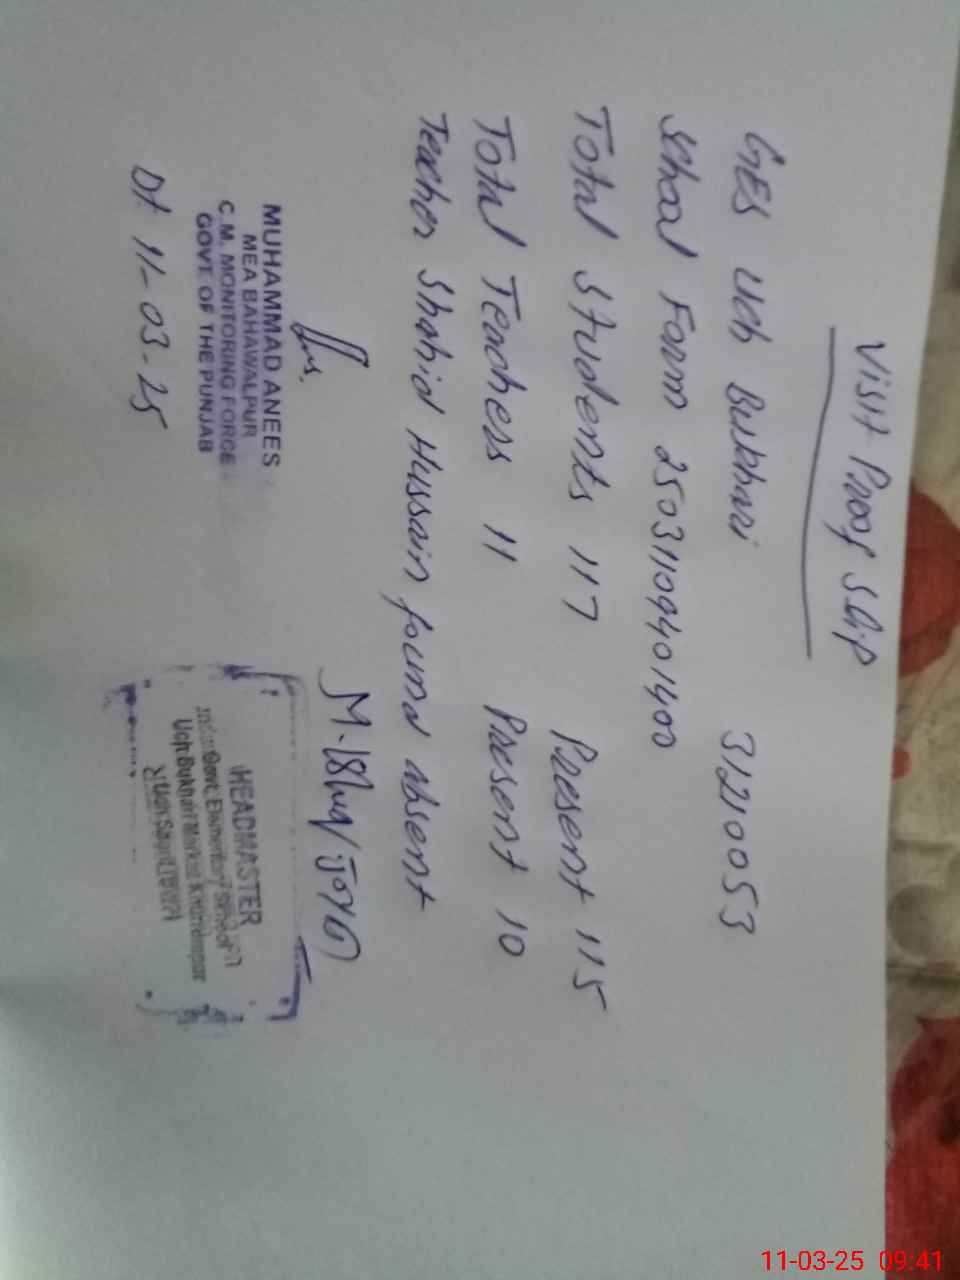 Visit Proof Slip
GES Uch Bukhari 31210053
School Form 2503110940401400
Total Students 117 Present 115
Total Teachess 11 Present 10
Teacher Shahid Hussain found absent
MUHAMMAD ANEES
MEA BAHAWALPUR
C.M. MONITORING FORCE
GOVT. OF THE PUNJAB
Dt 11-03-25
HEADMASTER
Govt. Elementary School
Uch Bukhari
11-03-25 09:41